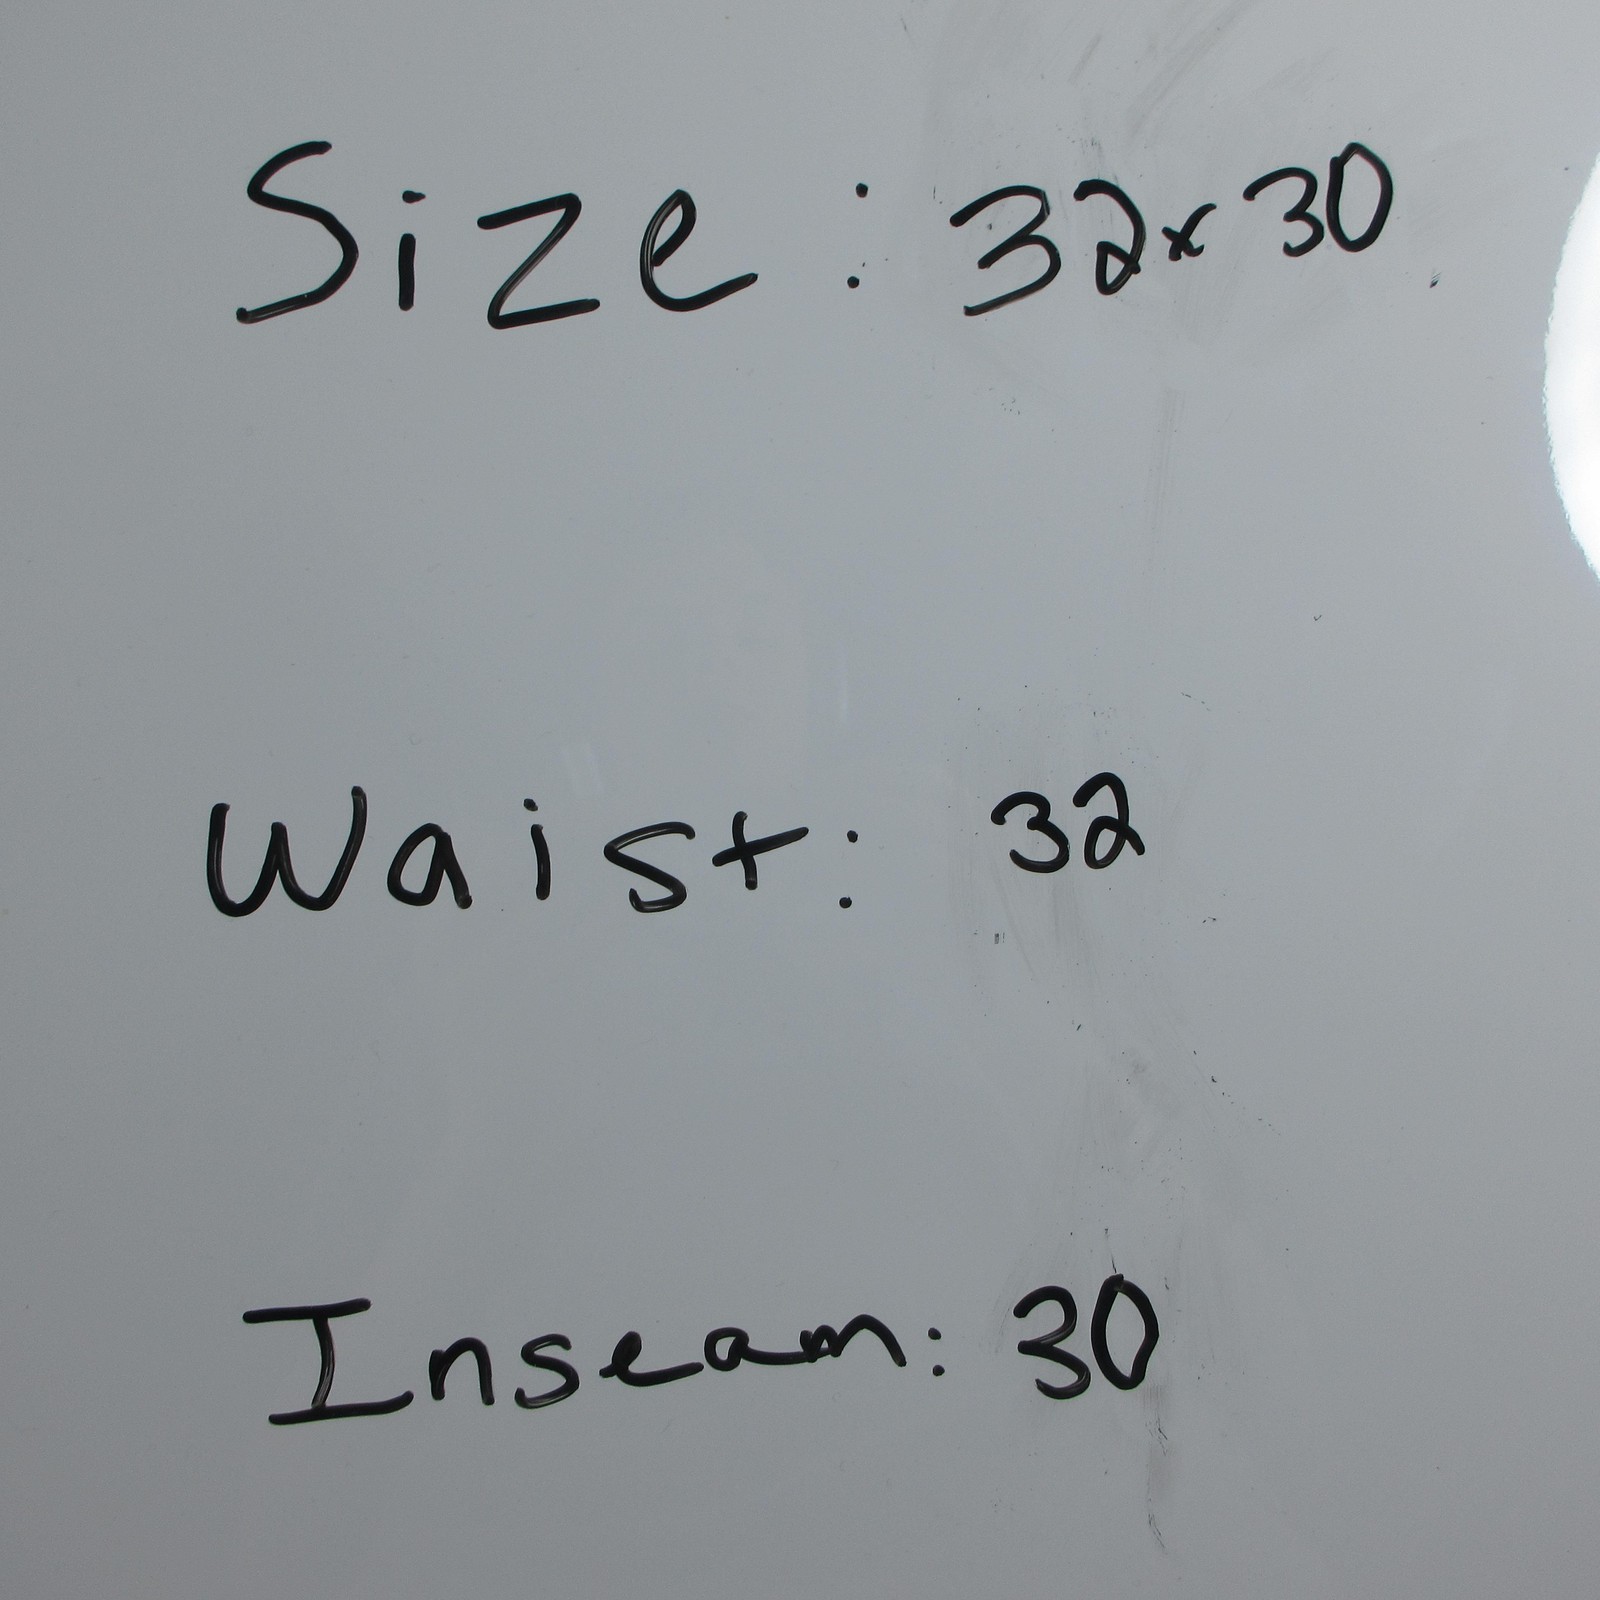 Size : 32x30
Waist: 32
Inseam: 30